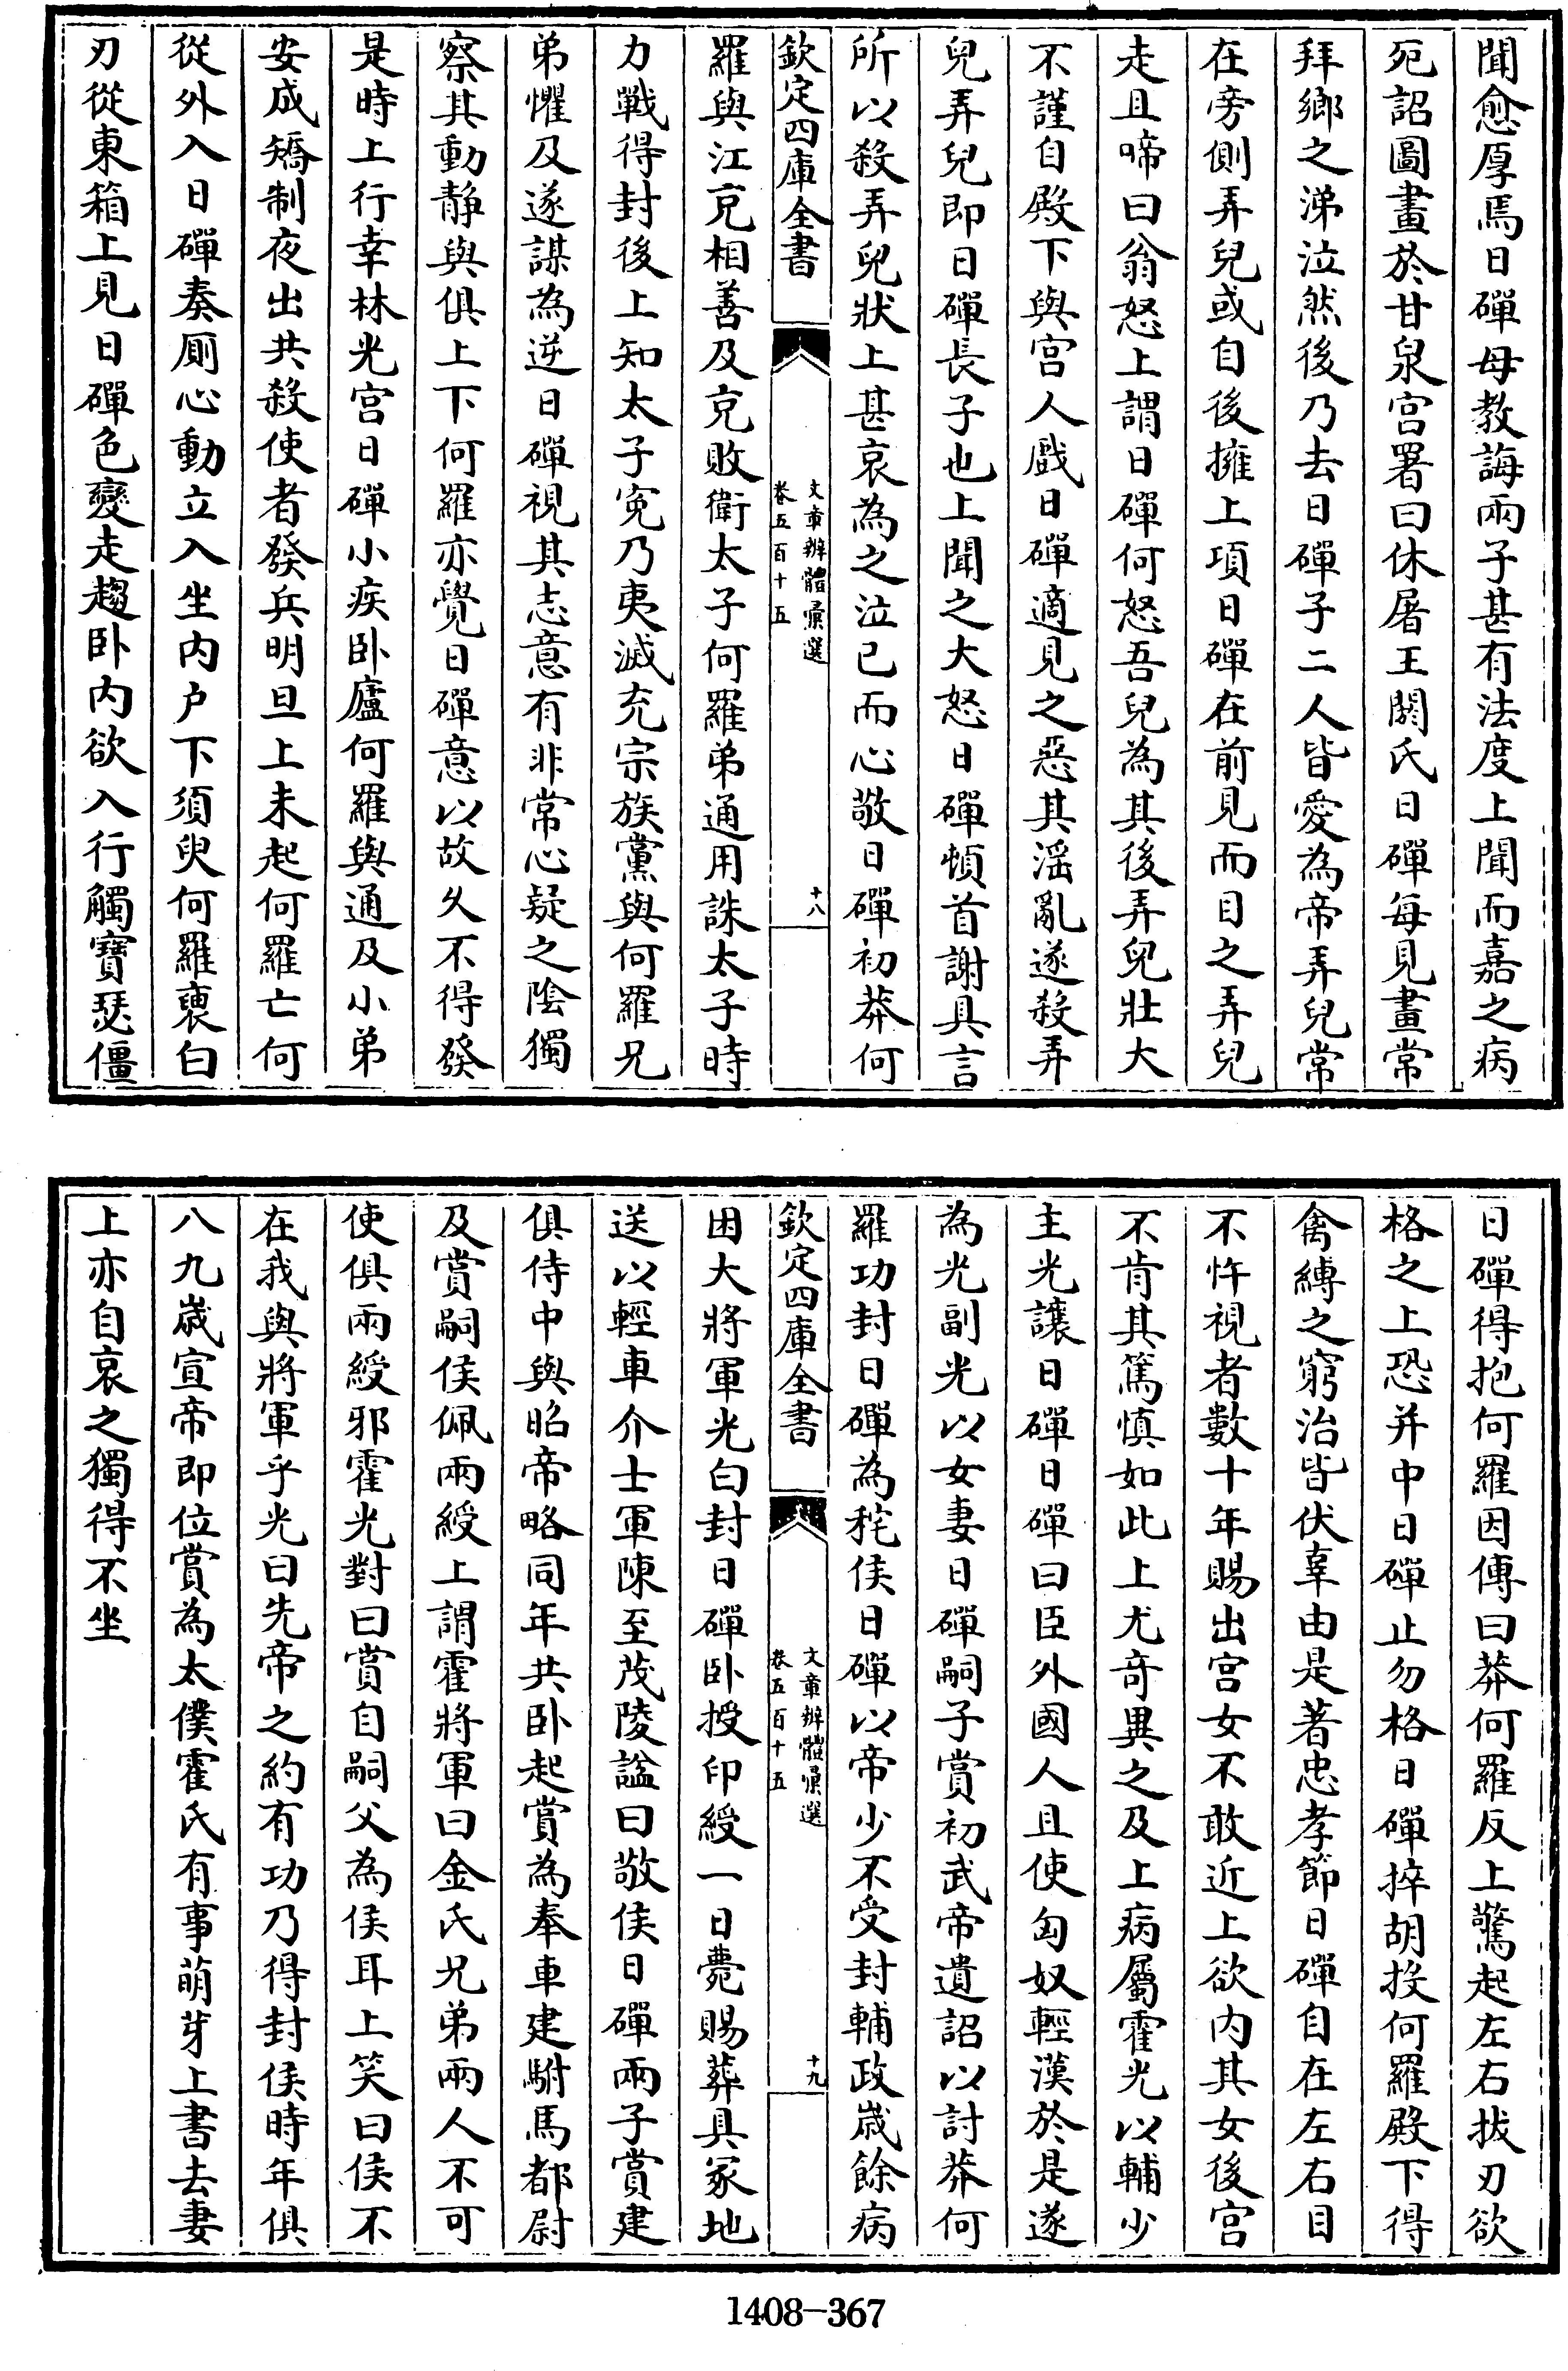 聞愈厚焉日磾母教誨兩子甚有法度上聞而嘉之病
死詔圖畫於甘泉宫署曰休屠王閼氏日磾每見畫常
拜鄉之涕泣然後乃去日磾子二人皆愛為帝弄兒常
在旁側弄兒或自後擁上項日磾在前見而目之弄兒
走且啼曰翁怒上謂日磾何怒吾兒為其後弄兒壯大
不謹自殿下與宫人戲日磾適見之惡其淫亂遂殺弄
兒弄兒即日磾長子也上聞之大怒日磾頓首謝具言
所以殺弄兒狀上甚哀為之泣已而心敬日磾初莽何
欽定四庫全書
文章辨體彙選
卷五百十五
十八
羅與江充相善及充敗衛太子何羅弟通用誅太子時
力戰得封後上知太子寃乃夷滅充宗族黨與何羅兄
弟懼及遂謀為逆日磾視其志意有非常心疑之陰獨
察其動靜與俱上下何羅亦覺日磾意以故久不得發
是時上行幸林光宫日磾小疾卧廬何羅與通及小弟
安成矯制夜出共殺使者發兵明旦上未起何羅亡何
從外入日磾奏厠心動立入坐内户下須臾何羅褏白
刃從東箱上見日磾色變走趨卧内欲入行觸寶瑟僵
日磾得抱何羅因傳曰莽何羅反上驚起左右拔刃欲
格之上恐并中日磾止勿格日磾捽胡投何羅殿下得
禽縛之窮治皆伏辜由是著忠孝節日磾自在左右目
不忤視者數十年賜出宫女不敢近上欲内其女後宫
不肯其篤慎如此上尤奇異之及上病屬霍光以輔少
主光讓日磾日磾曰臣外國人且使匈奴輕漢於是遂
為光副光以女妻日磾嗣子賞初武帝遺詔以討莽何
羅功封日磾為秺侯日磾以帝少不受封輔政歲餘病
欽定四庫全書
文章辨體彙選
卷五百十五
十九
困大將軍光白封日磾卧授印綬一日薨賜葬具冢地
送以輕車介士軍陳至茂陵諡曰敬侯日磾兩子賞建
俱侍中與昭帝略同年共卧起賞為奉車建駙馬都尉
及賞嗣侯佩兩綬上謂霍將軍曰金氏兄弟兩人不可
使俱兩綬邪霍光對曰賞自嗣父為侯耳上笑曰侯不
在我與將軍乎光曰先帝之約有功乃得封侯時年俱
八九歲宣帝即位賞為太僕霍氏有事萌芽上書去妻
上亦自哀之獨得不坐
1408-367